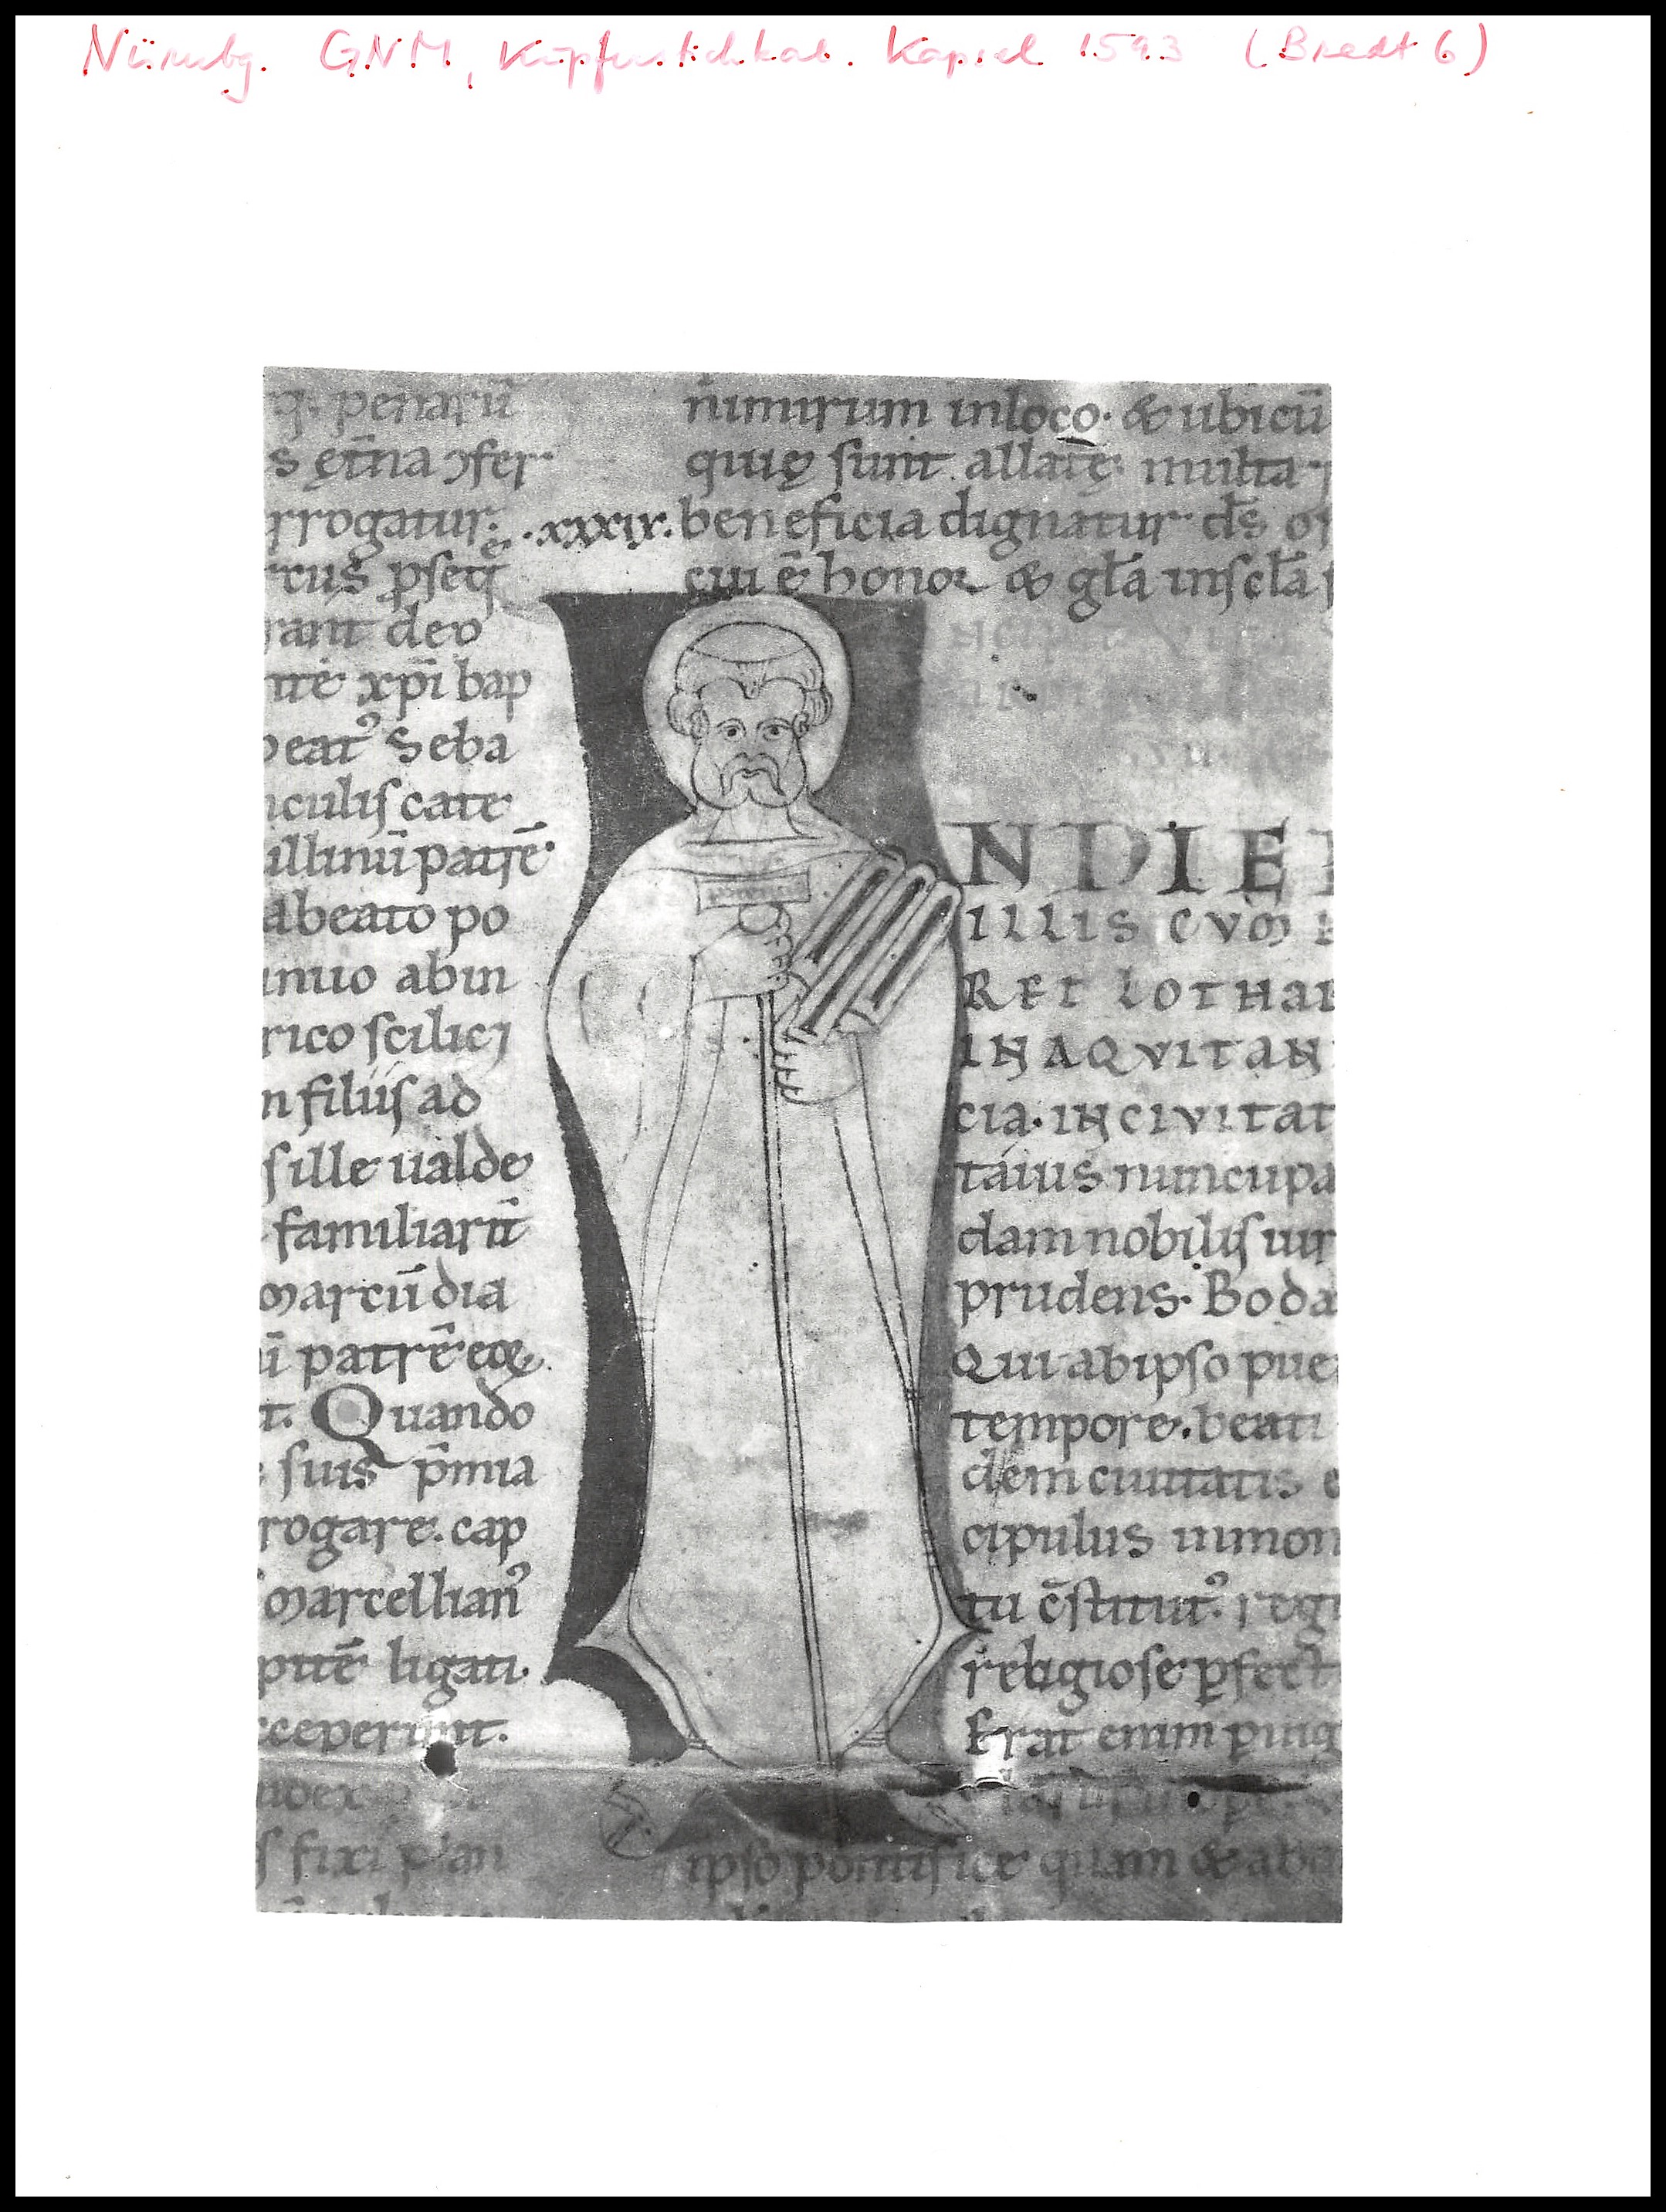 Nürnbg. GNM, Kupferstichkab. Kapsel 1593 (Bredt 6)
q; penarū
s ęt̄na ɔfer
rrogatur.
cus p̱seq̄
rant deo
xp̄i bap
beat᷒ Seba
iculis cate
illinū patrē
abeato po
inuo abin
rico scilic
n filiis ad
sille ualde
familiarū
marcū dia
ū patrē eoꝝ
t. Quando
suis p̄mia
rogare. cap
marcellian᷒
ptē ligati.
ceperunt.
s fixi
.xxxix.
nimirum inloco. & ubicū
quię sunt allatę multa
beneficia dignatur dīs
cui ē honor & gl̄a inscl̄a
NDIE
ILLIS CVM
RET LOTHAR
IN AQVITAN
CIA. IN CIVITAT
taius nuncupa
dam nobilis uir
prudens. Boda
Qui abipso pue
tempore. beati
dem ciuitatis e
cipulus inmon
tu c̄stitut᷒. reg
religiose ꝑfect
Erat enim ping
ipso pontifice quam & ab